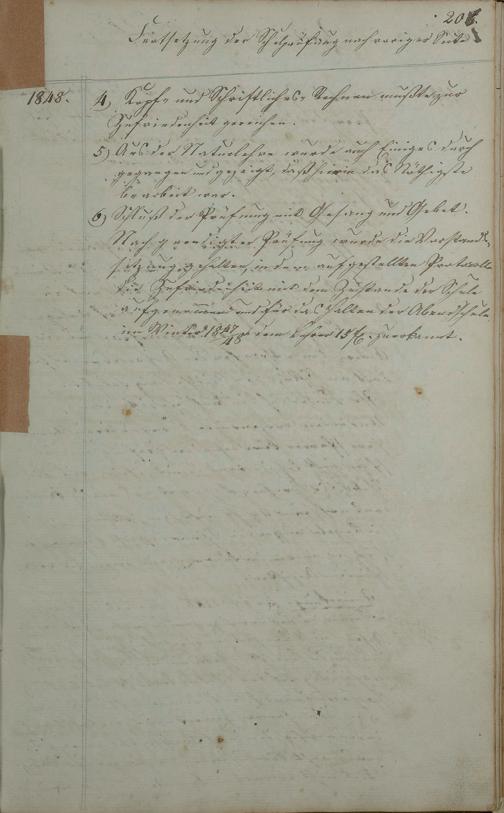 207
Fortsetzung der Schulprüfung nach voriger Seite
1848.
4, Kopf- und Schriftliches Rechnen mußte zur
Zufriedenheit gereichen.
5) Aus der Naturlehre wurde auch Einiges durch
gegangen und gezeigt, daß hierin das Nöthigste
bearbeitet war.
6) Schluß der Prüfung mit Gesang und Gebet.
Nach geendigter Prüfung wurde die Vorstands-
sitzung gehalten, in dem aufgestellten Protocolle
die Zufriedenheit mit dem Zustande der Schule
aufgenommen und für das Halten der Abendschule
im Winter 1847/48 dem Lehrer 15 f. zuerkannt.